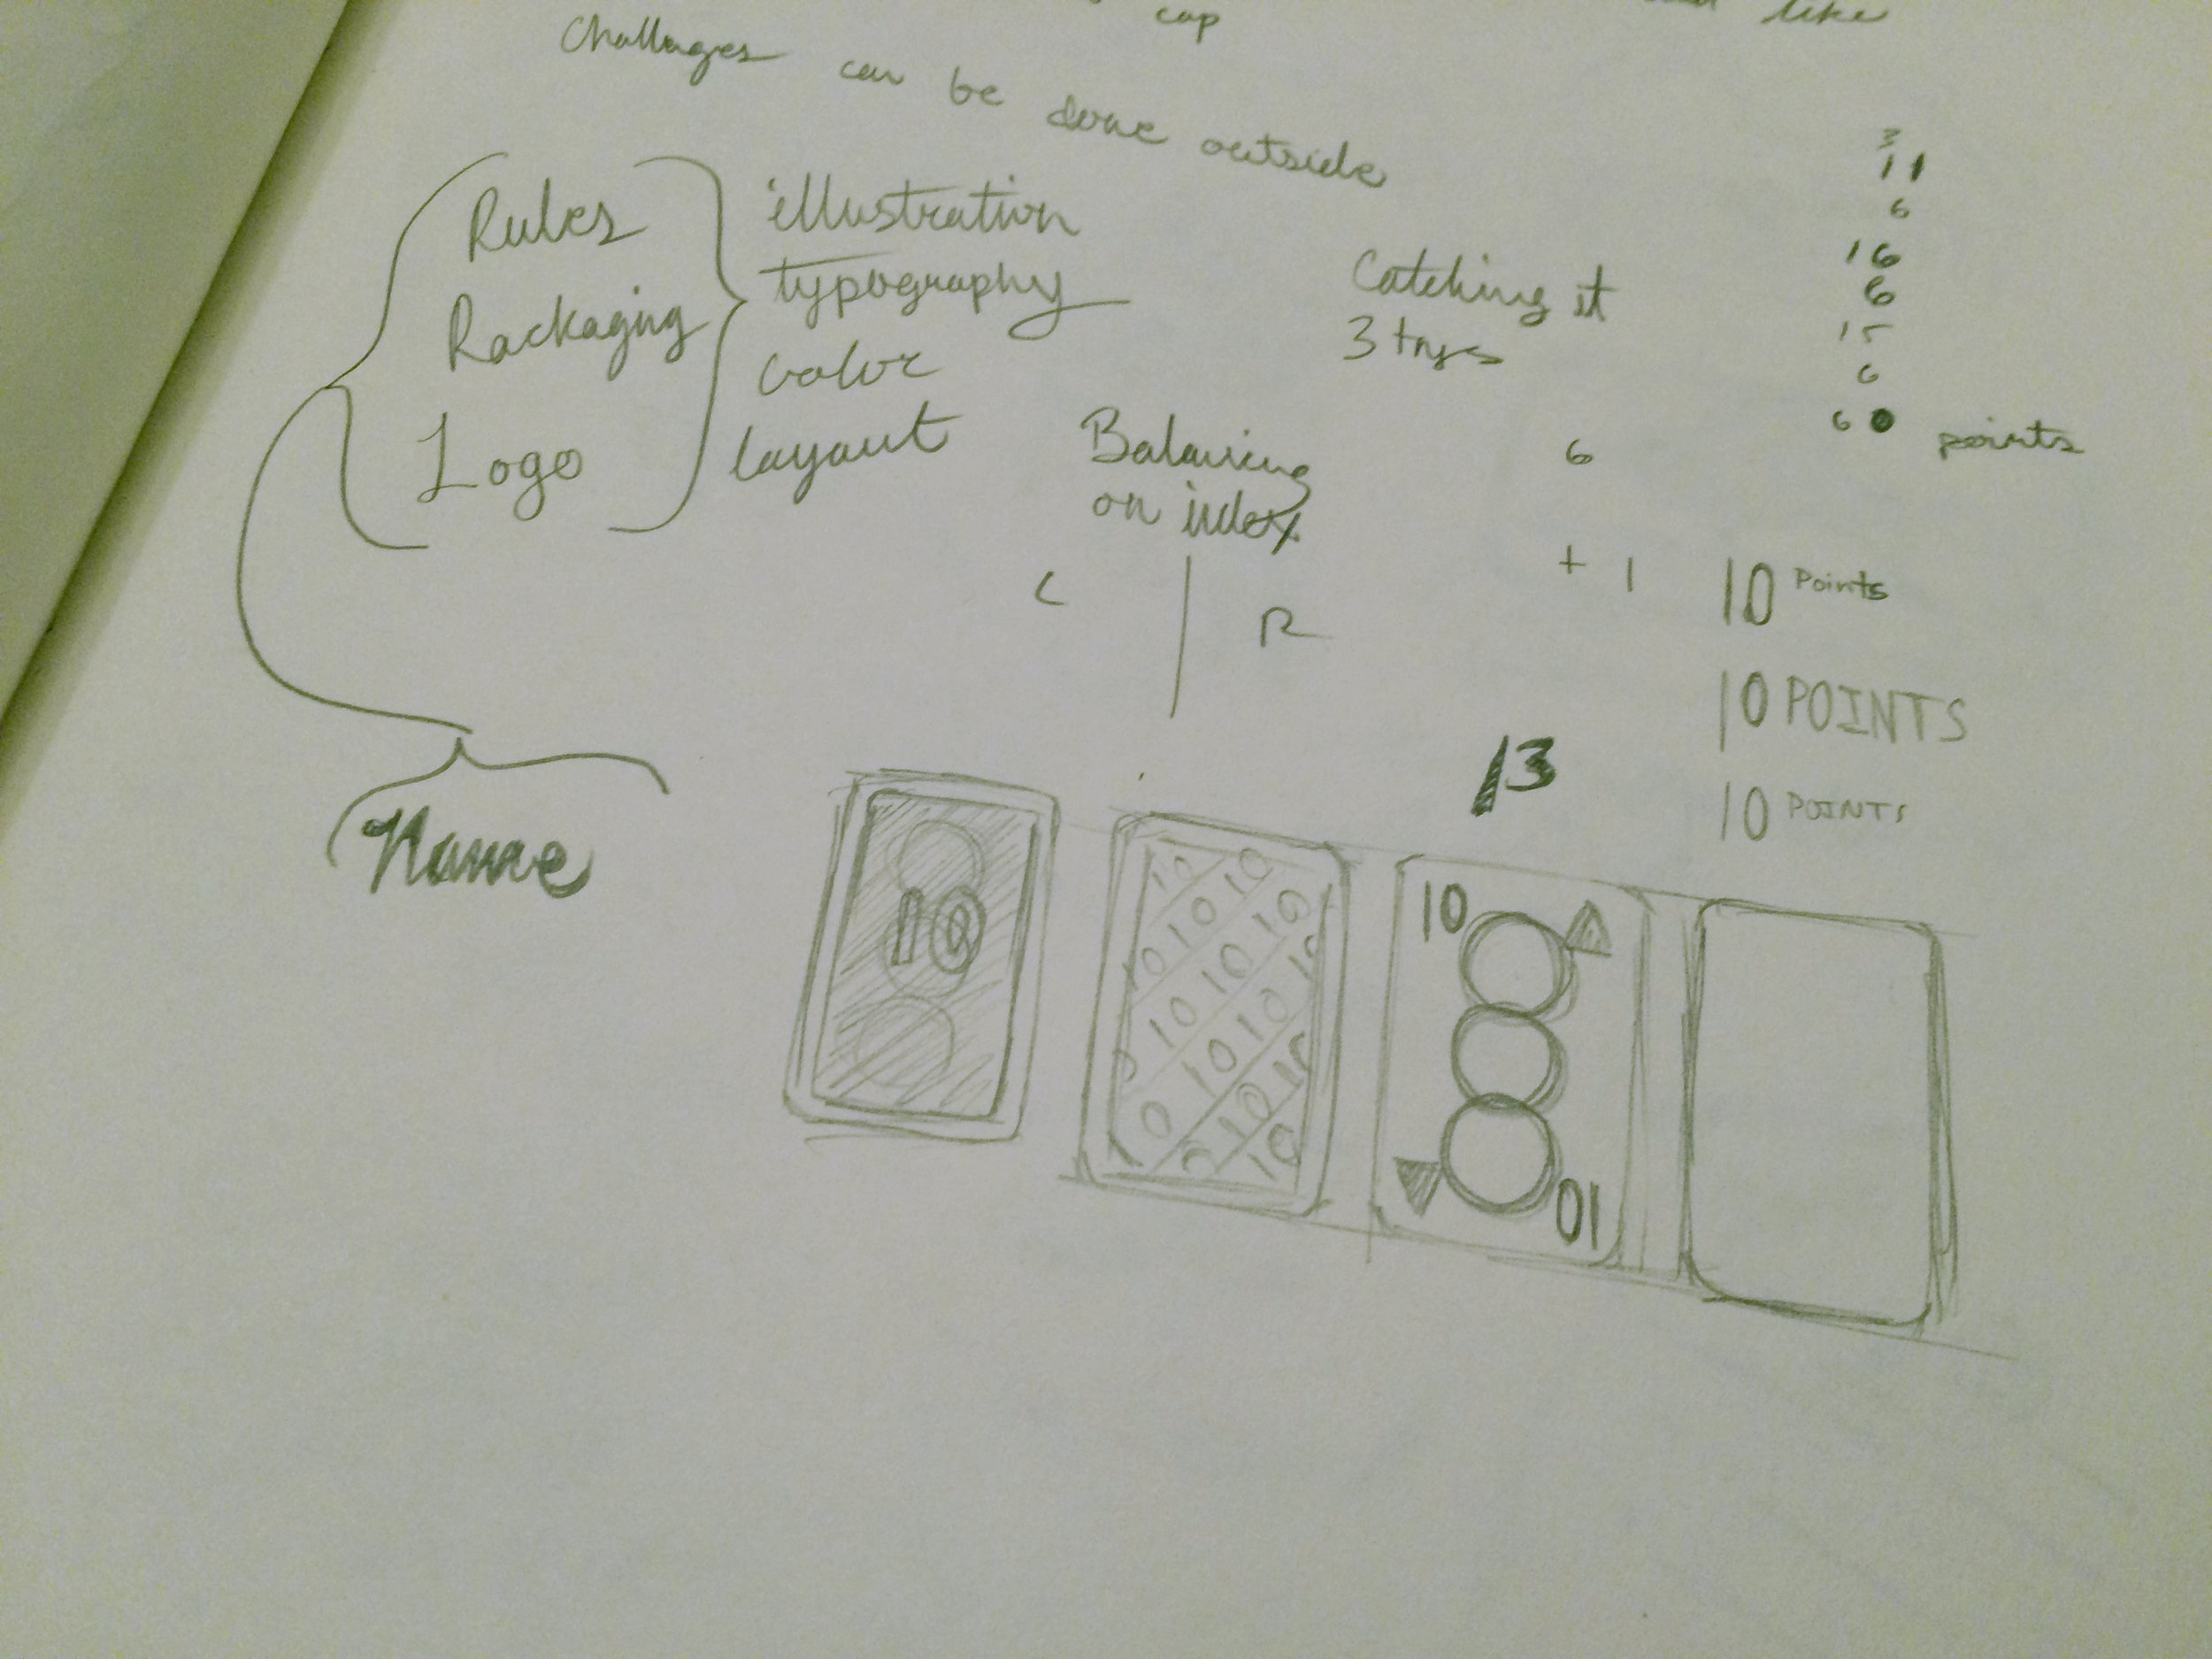 cap
like
Challenges can be done outside
Rules
Packaging
Logo
illustration
typography
color
layout
Catching it
3 trys
3
11
6
16
6
15
6
60 points
Balancing
on index
L
R
6
+ 1
10 Points
10 POINTS
10 POINTS
Name
13
10
10 10
10 10 10
10 10 10
10 10 10
10 10
10
10
10